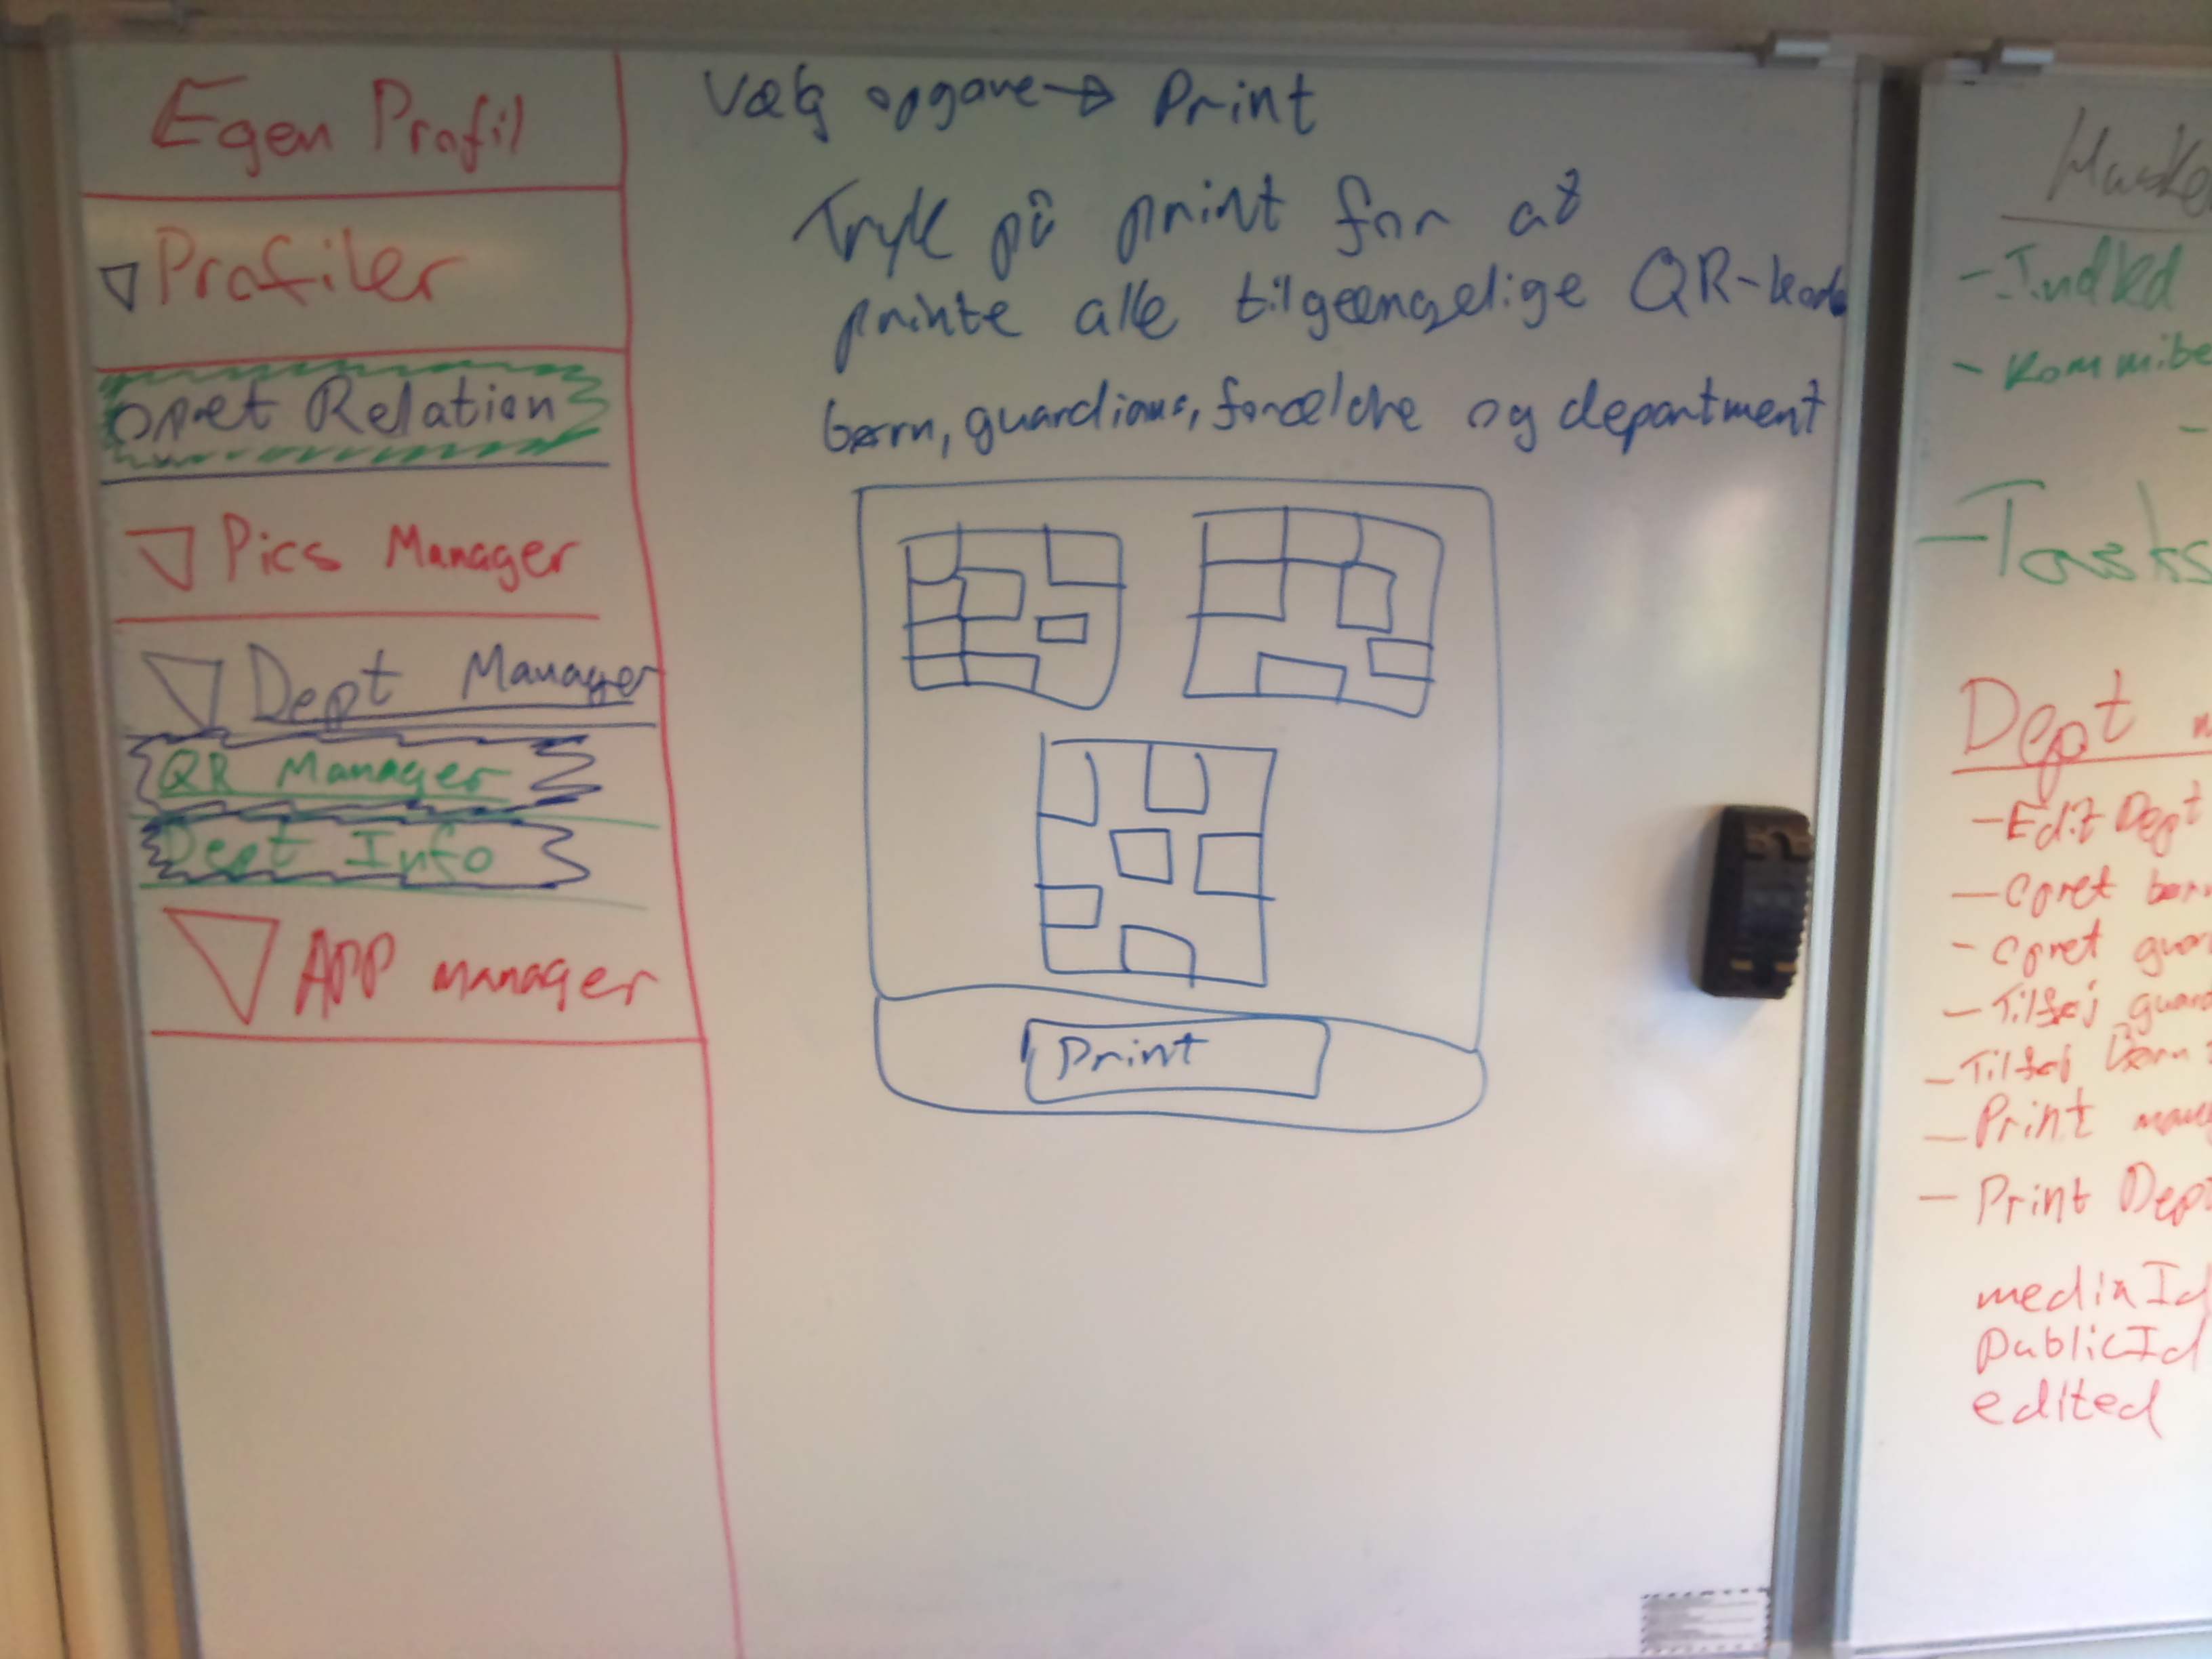 Egen Profil
Profiler
opret Relation
Pics Manager
Dept Manager
QR Manager
Dept Info
APP manager
Vælg opgave → Print
Tryk på print for at
printe alle tilgængelige QR-kode
børn, guardians, forældre og department
Print
- Indkø
- Kommi
-
- Tasks
Dept
- Edit Dept
- Opret børn
- Opret guar
- Tilføj guard
- Tilføj børn
- Print man
- Print Dep
mediaId
publicId
edited